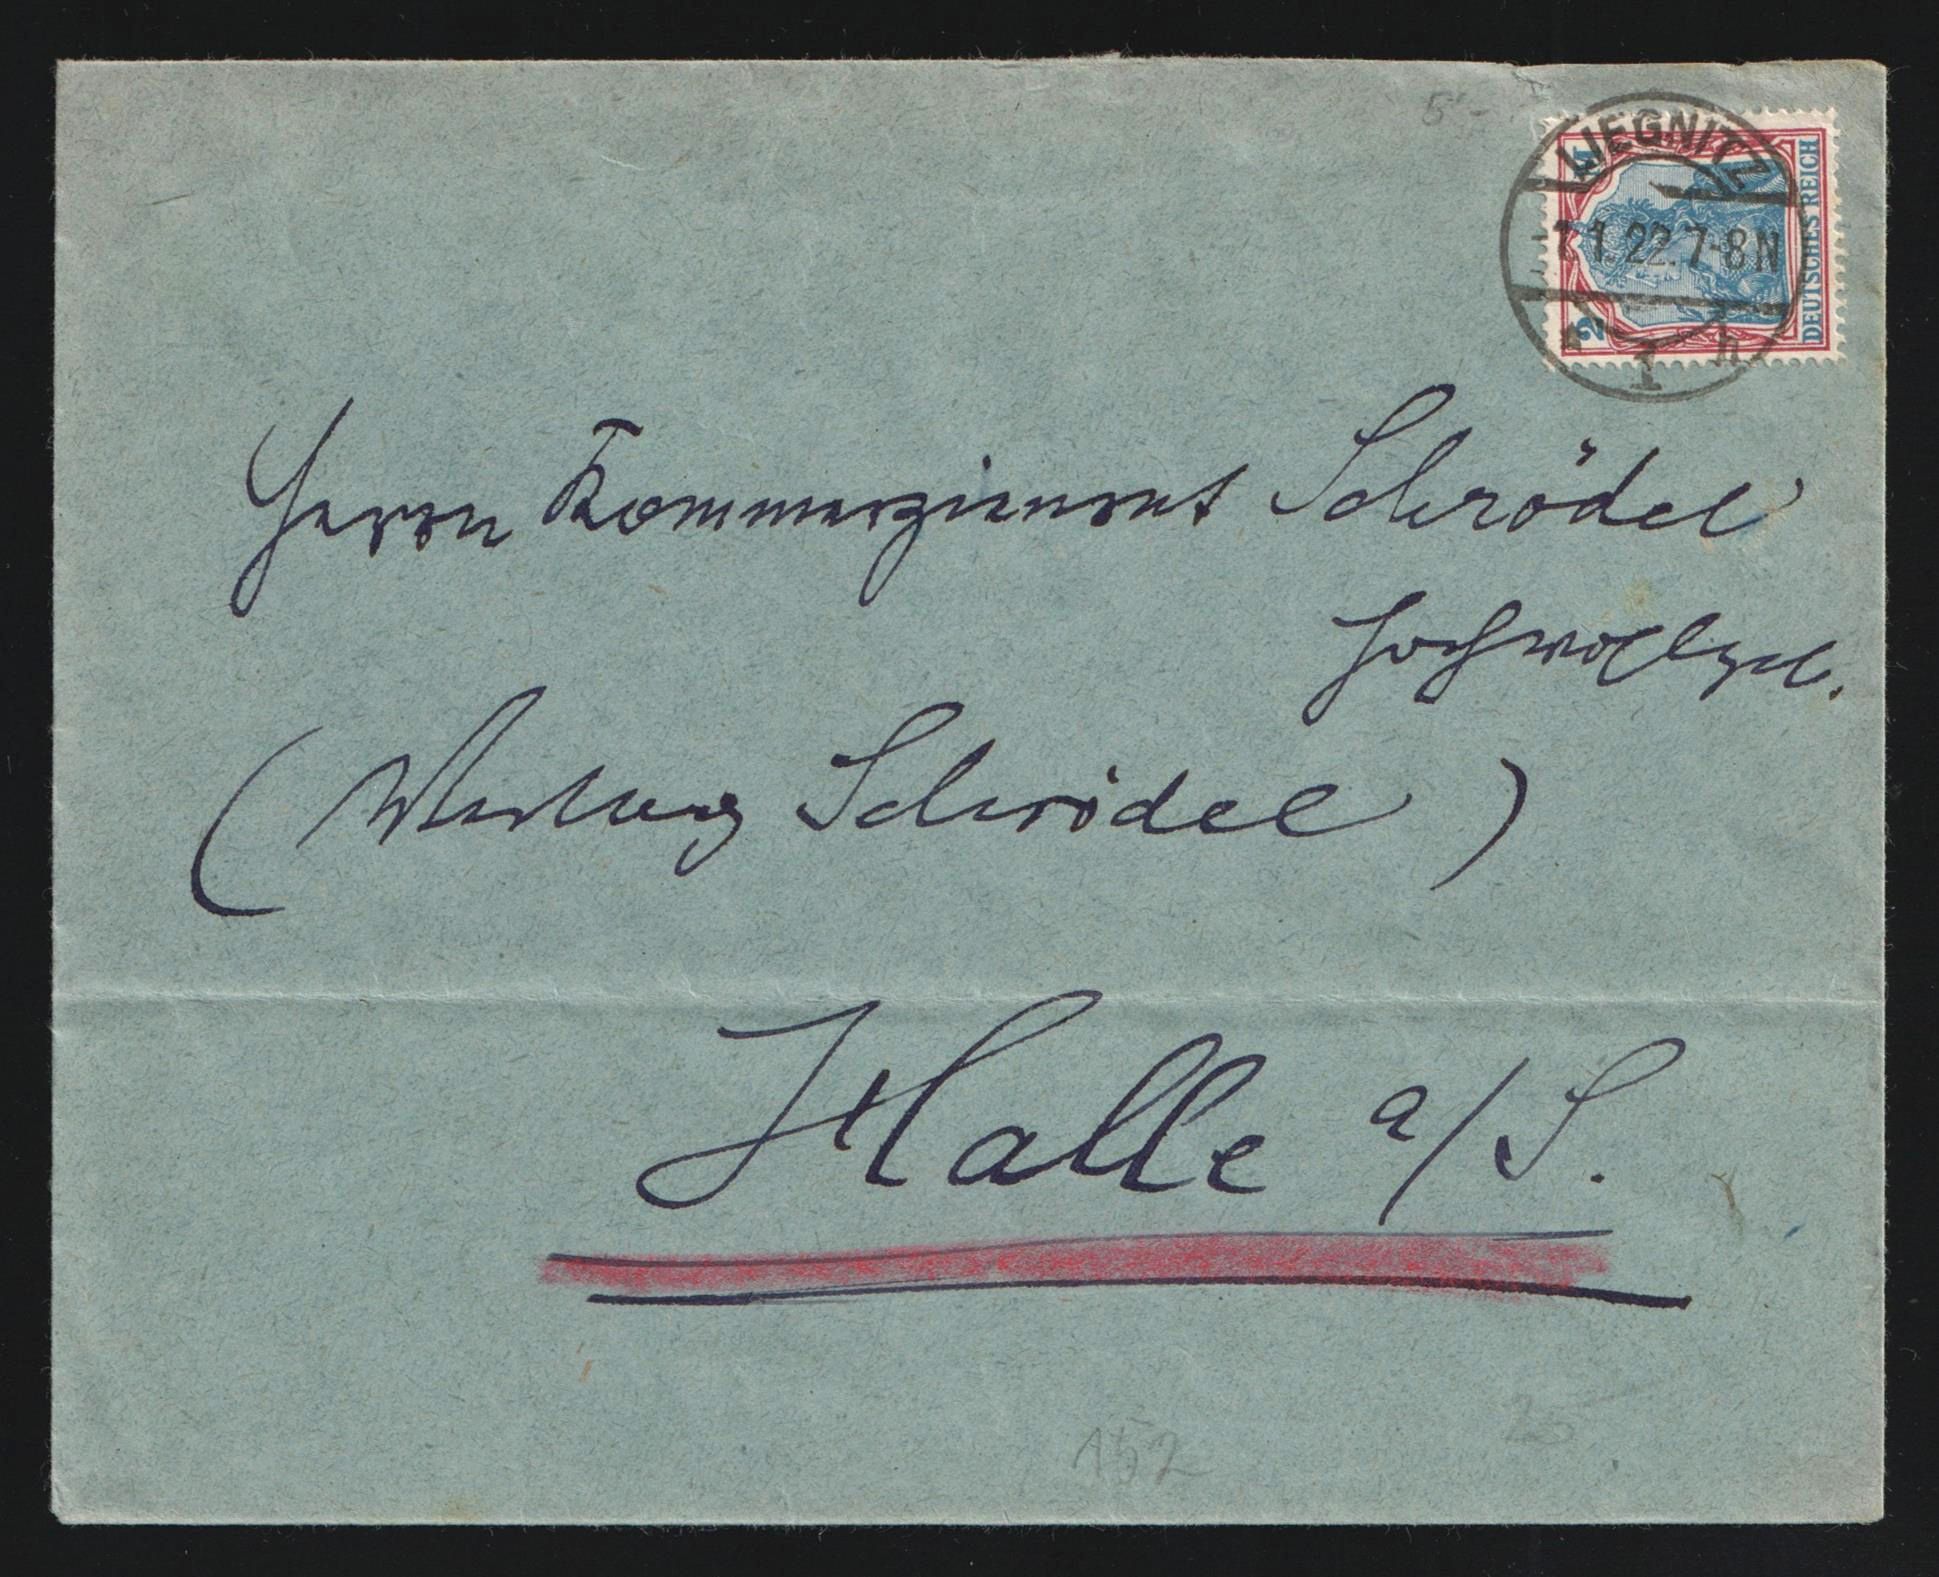 5'-
LIEGNITZ
1.1.22.7-8N
1 h
2 M
DEUTSCHES REICH
Herrn Kommerzienrat Schrödel
Hochwohlgeb.
( Schrödel )
Halle a/S.
152
25